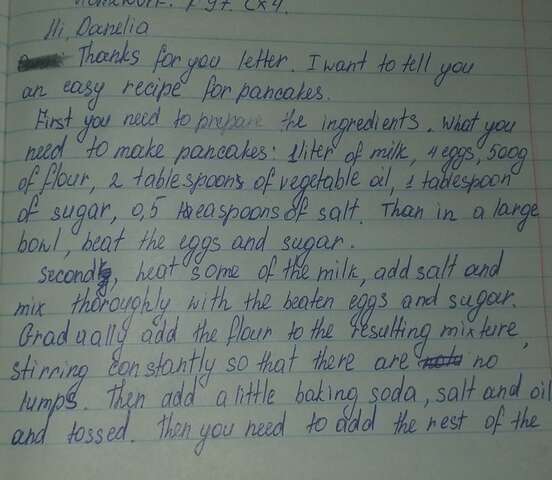 Homework. p 97. Ex4.
Hi, Danelia
Thanks for you letter. I want to tell you
an easy recipe for pancakes.
First you need to prepare the ingredients. What you
need to make pancakes: 1 liter of milk, 4 eggs, 500g
of flour, 2 tablespoons of vegetable oil, 1 tablespoon
of sugar, 0,5 teaspoons of salt. Than in a large
bowl, beat the eggs and sugar.
Second, heat some of the milk, add salt and
mix thoroughly with the beaten eggs and sugar.
Gradually add the flour to the resulting mixture,
stirring constantly so that there are no
lumps. Then add a little baking soda, salt and oil
and tossed. Then you need to add the rest of the